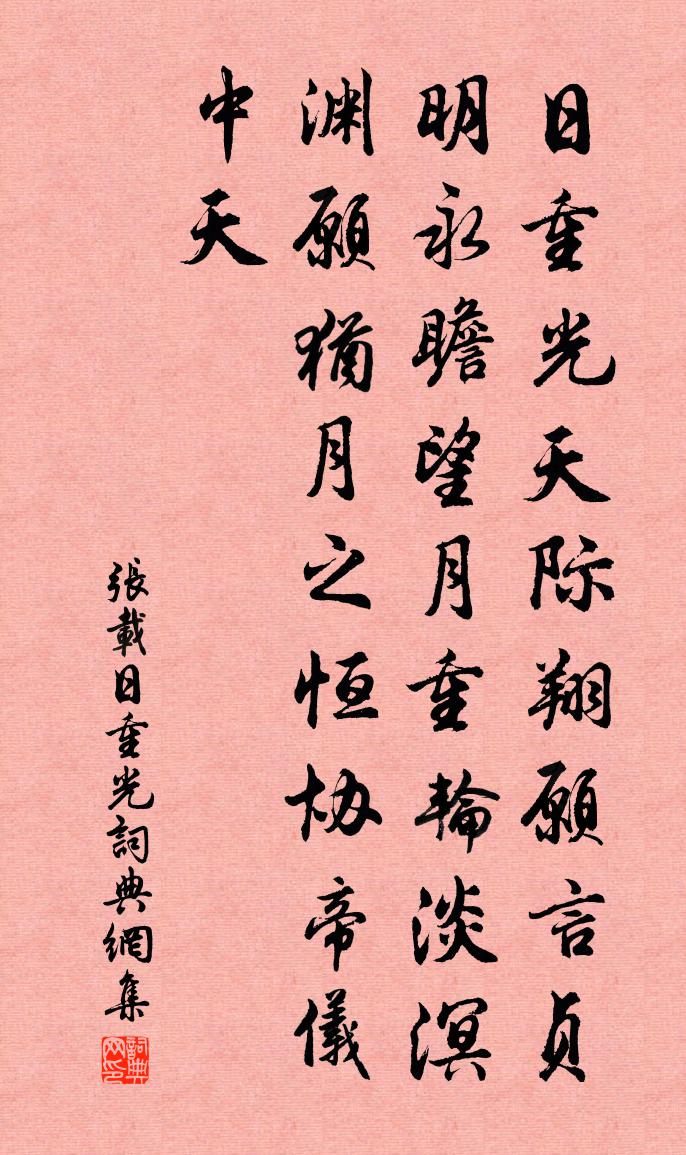 日重光天际翔願言貞
明永瞻望月重輪淡溟
渊願猶月之恒协帝儀
中天
張載日重光詞典網集
詞典网印